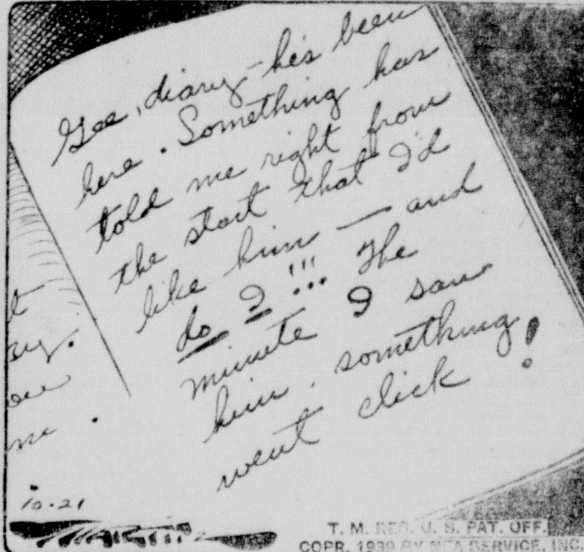 Gee, diary - he's been
here. Something has
told me right from
the start that I'd
like him — and
do I !!! The
minute I saw
him, something
went click!
10-21
MARTIN
T. M. REG. U. S. PAT. OFF.
COPR. 1939 BY NEA SERVICE, INC.